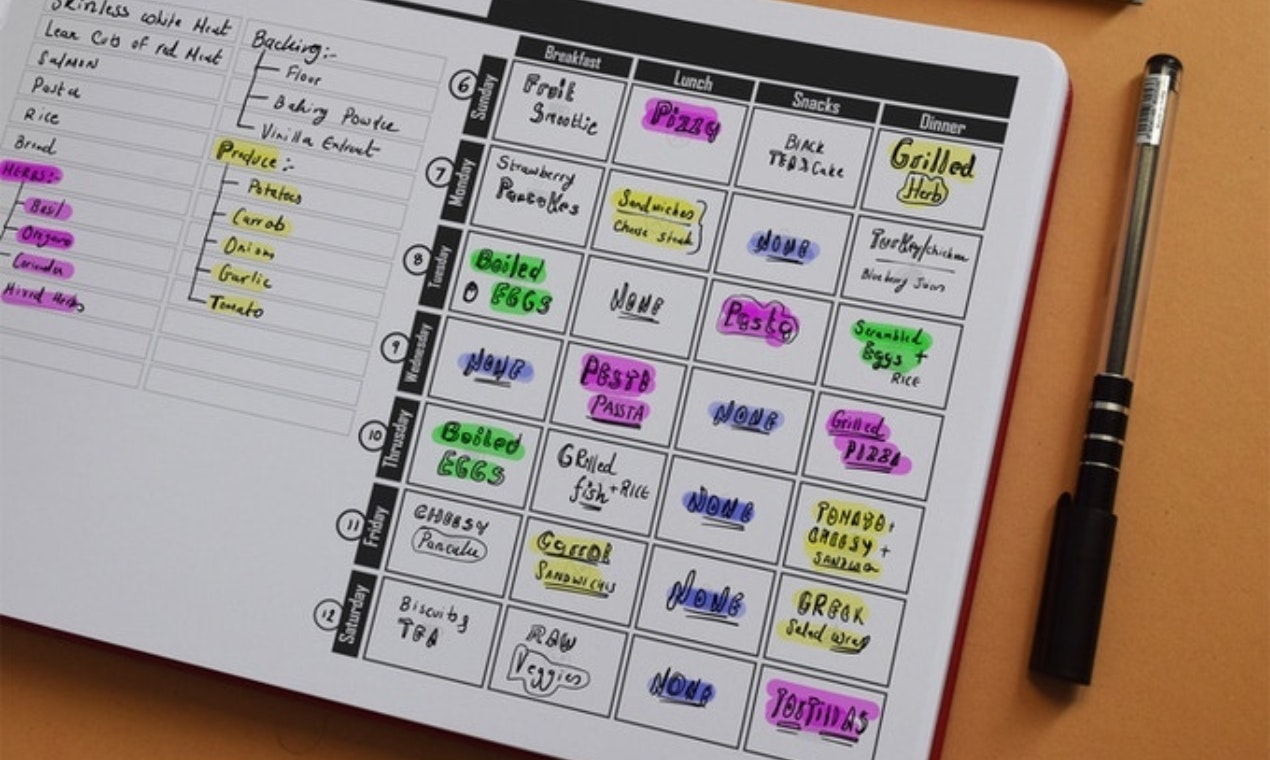 Skinless white Meat
Lean Cuts of red Meat
Salmon
Pasta
Rice
Bread
HERBS:-
Basil
Oregano
Coriander
Mixed Herbs
Backing:-
Flour
Baking Powder
Vinilla Extract
Produce:-
Potatoes
Carrots
Onion
Garlic
Tomato
Breakfast
Lunch
Snacks
Dinner
6
Sunday
Fruit
Smoothie
Pizza
Black
TEA & Cake
Grilled
Herb
7
Monday
Strawberry
Pancakes
Sandwiches
Cheese Steak
NONE
Turkey/chicken
Blueberry
8
Tuesday
Boiled
EGGS
NONE
Pasta
Scrambled
Eggs +
RICE
9
Wednesday
NONE
PESTO
PASSTA
NONE
Grilled
PIZZA
10
Thrusday
Boiled
EGGS
GRilled
fish + RICE
NONE
TOMATO +
CHEESY +
11
Friday
CHEESY
Pancake
Carrot
SANDWICHS
NONE
GREEK
Salad wrap
12
Saturday
Biscuits
TEA
RAW
Veggies
NONE
TORTILLAS